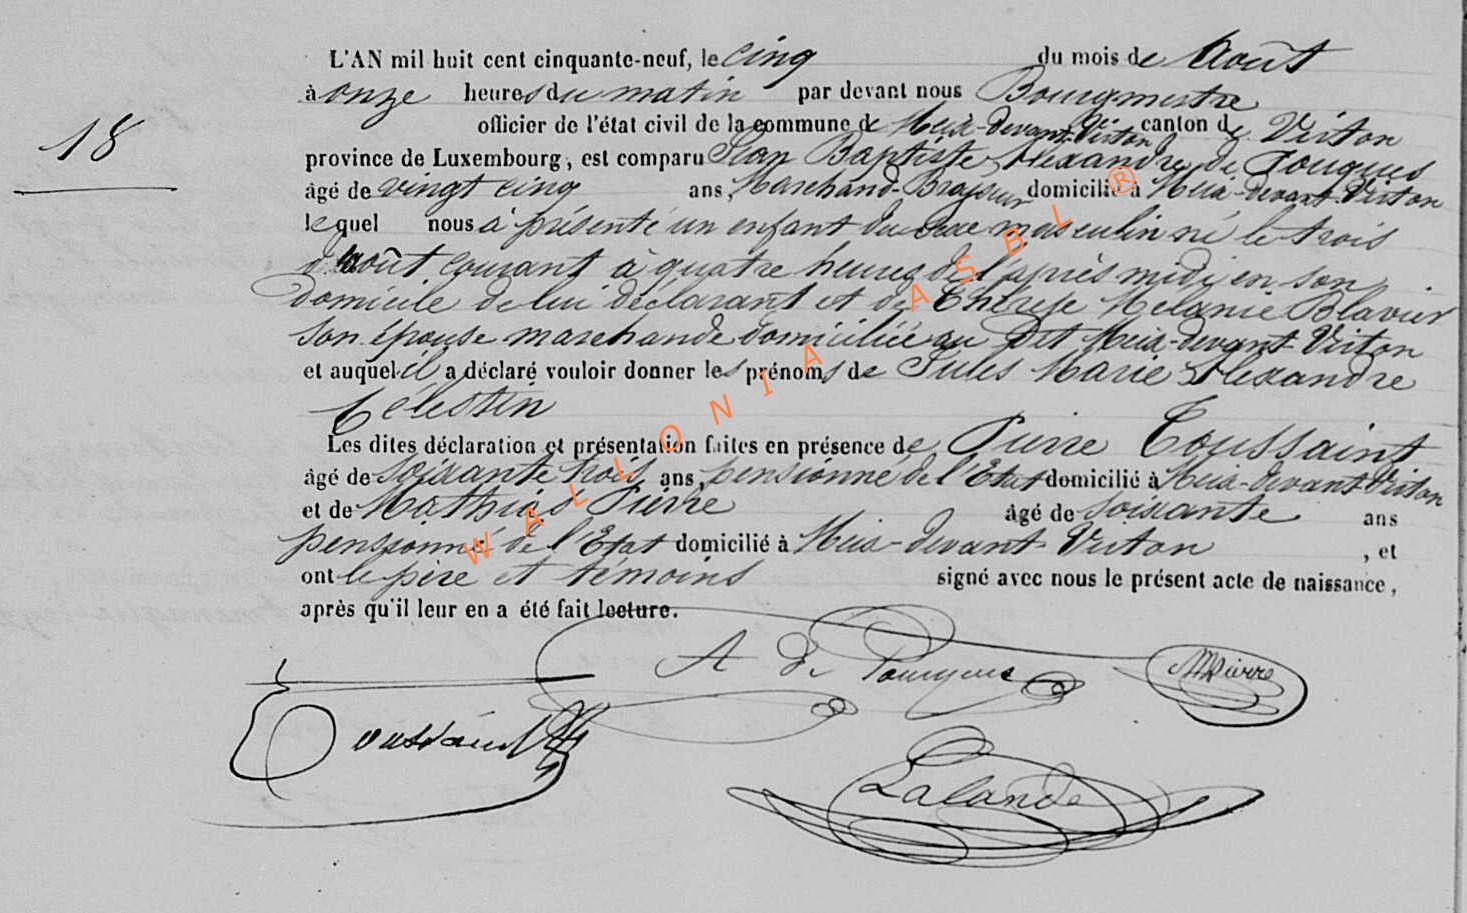 18
L'AN mil huit cent cinquante-neuf, le cinq du mois de Août
à onze heures du matin par devant nous Bourgmestre
officier de l'état civil de la commune de Meix-devant-Virton canton de Virton
province de Luxembourg, est comparu Jean Baptiste Alexandre de Fouques
âgé de vingt cinq ans, Marchand-Brasseur domicilié à Meix-devant-Virton
lequel nous a présenté un enfant du sexe masculin né le trois
d'août courant à quatre heures de l'après midi en son
domicile de lui déclarant et de Thérese Melanie Blavier
son épouse marchande domiciliée au dit Meix-devant-Virton
et auquel il a déclaré vouloir donner les prénoms de Jules Marie Alexandre
Célestin
Les dites déclaration et présentation faites en présence de Pierre Toussaint
âgé de soixante trois ans, pensionné de l'Etat domicilié à Meix-devant Virton
et de Mathias Pierre âgé de soixante ans
pensionné de l'Etat domicilié à Meix-devant-Virton , et
ont le père et témoins signé avec nous le présent acte de naissance,
après qu'il leur en a été fait lecture.
A de Fouques
M Pierre
Toussaint
Lalande
WALLONIA ASBL ®